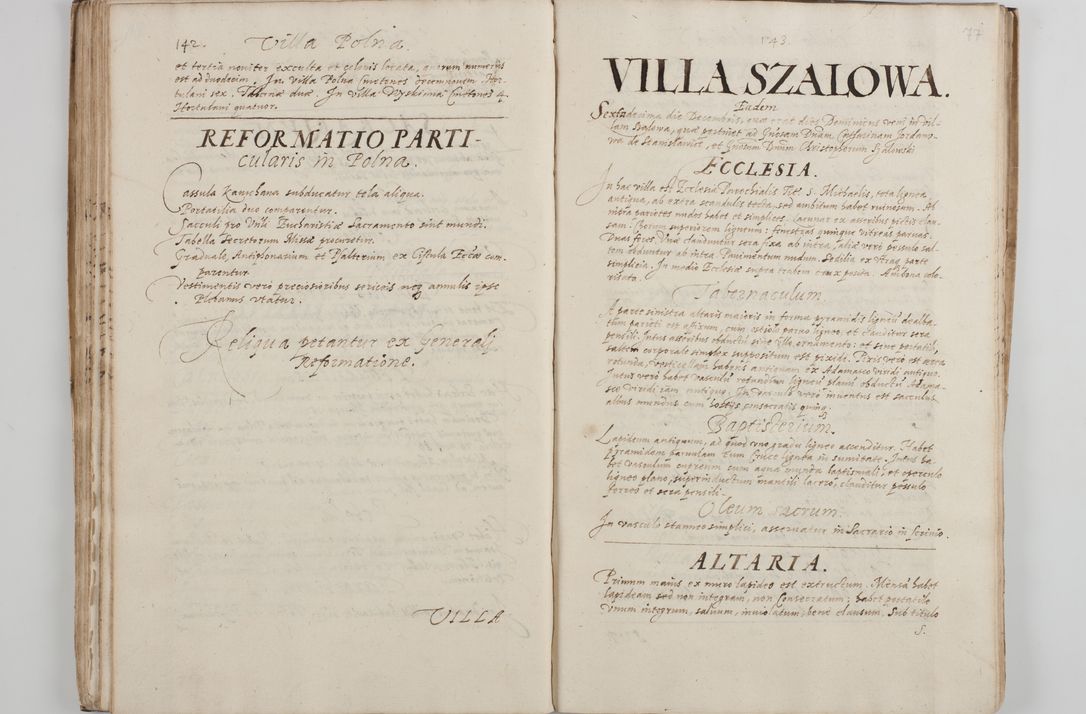 142. Villa Polna.
et tertia noviter exculta et colonis locata, quorum numerus
est ad duodecim. In Villa Polna Cmetones decemnovem. Hor-
tulani sex. Tabernæ duæ. In villa Wyskitna Cmetones 4.
Hortulani quatuor.
REFORMATIO PARTI-
cularis in Polna.
Cassula Kanichana subducatur tela aliqua.
Portatilia duo comparentur.
Sacculi pro Vñli Eucharistiæ Sacramento sint mundi.
Tabella Secretorum Missæ procuretur.
Graduale, Antiphonarium et Psalterium ex Cistula Eccæ com-
parentur.
Vestimentis vero preciosioribus sericeis neq annulis ipse
Plebanus utatur.
Reliqua petantur ex Generali
Reformatione.
VILLA
143. 77
VILLA SZALOWA.
Eadem
Sextadecima die Decembris, quæ erat dies Dominicus veni in Vil-
lam Szalowa, quæ pertinet ad Gnosam Dnam Catharinam Jordano-
wa de Stanislawice, et Gnosum Dnum Christophorum Szalowski
ECCLESIA.
In hac villa est Ecclesia Parochialis Tit. S. Michaelis, tota lignea
antiqua, ab extra scandulis tecta, sed ambitum habet ruinosum. Ab
intra parietes nudos habet et simplices. Lacunar ex asseribus pictis clau-
sum. Chorum superiorem ligneum: fenestras quinque vitreas parvas.
Duas fores, Unæ clauduntur sera fixa ab intra, aliæ vero pessulo sal-
tem obduntur ab intra. Pavimentum nudum. Sedilia ex utraq parte
simplicia. In medio Ecclesiæ supra trabem crux posita. Ambona colo-
risata.
Tabernaculum.
A parte sinistra altaris maioris in forma pyramidis ligneũ dealba-
tum parieti est affixum, cum ostiolo parvo ligneo, et clauditur sera
pensili. Intus asseribus obductũ sine ullo ornamento: et sine portatili,
saltem corporale simplex suppositum est pixidi. Pixis vero est aerea
rotunda, vesticellam habens antiquam ex Adamasco viridi antiquo.
Intus vero habet vasculũ rotundum ligneum stanno obductũ Adama-
sco viridi iam antiquo. In vasculo vero inventus est sacculus
albus mundus cum hostijs consecratis quinq.
Baptisterium.
Lapideum antiquum, ad quod uno gradu ligneo ascenditur. Habet
pyramidem parvulam cum Cruce lignea in sumitate. Intus ha-
bet vasculum cupreum cum aqua munda baptismali, et operculo
ligneo plano, superinductum mantili lacero, clauditur pessulo
ferreo et sera pensili.
Oleum sacrum.
In vasculo stanneo simplici, asservatur in Sacrario in scrinio.
ALTARIA.
Primum maius ex muro lapideo est extructum. Mensã habet
lapideam sed non integram, non Consecratum; habet portatile
Unum integrum, salvum, inviolatum, bene clausum. Sub titulo
S.